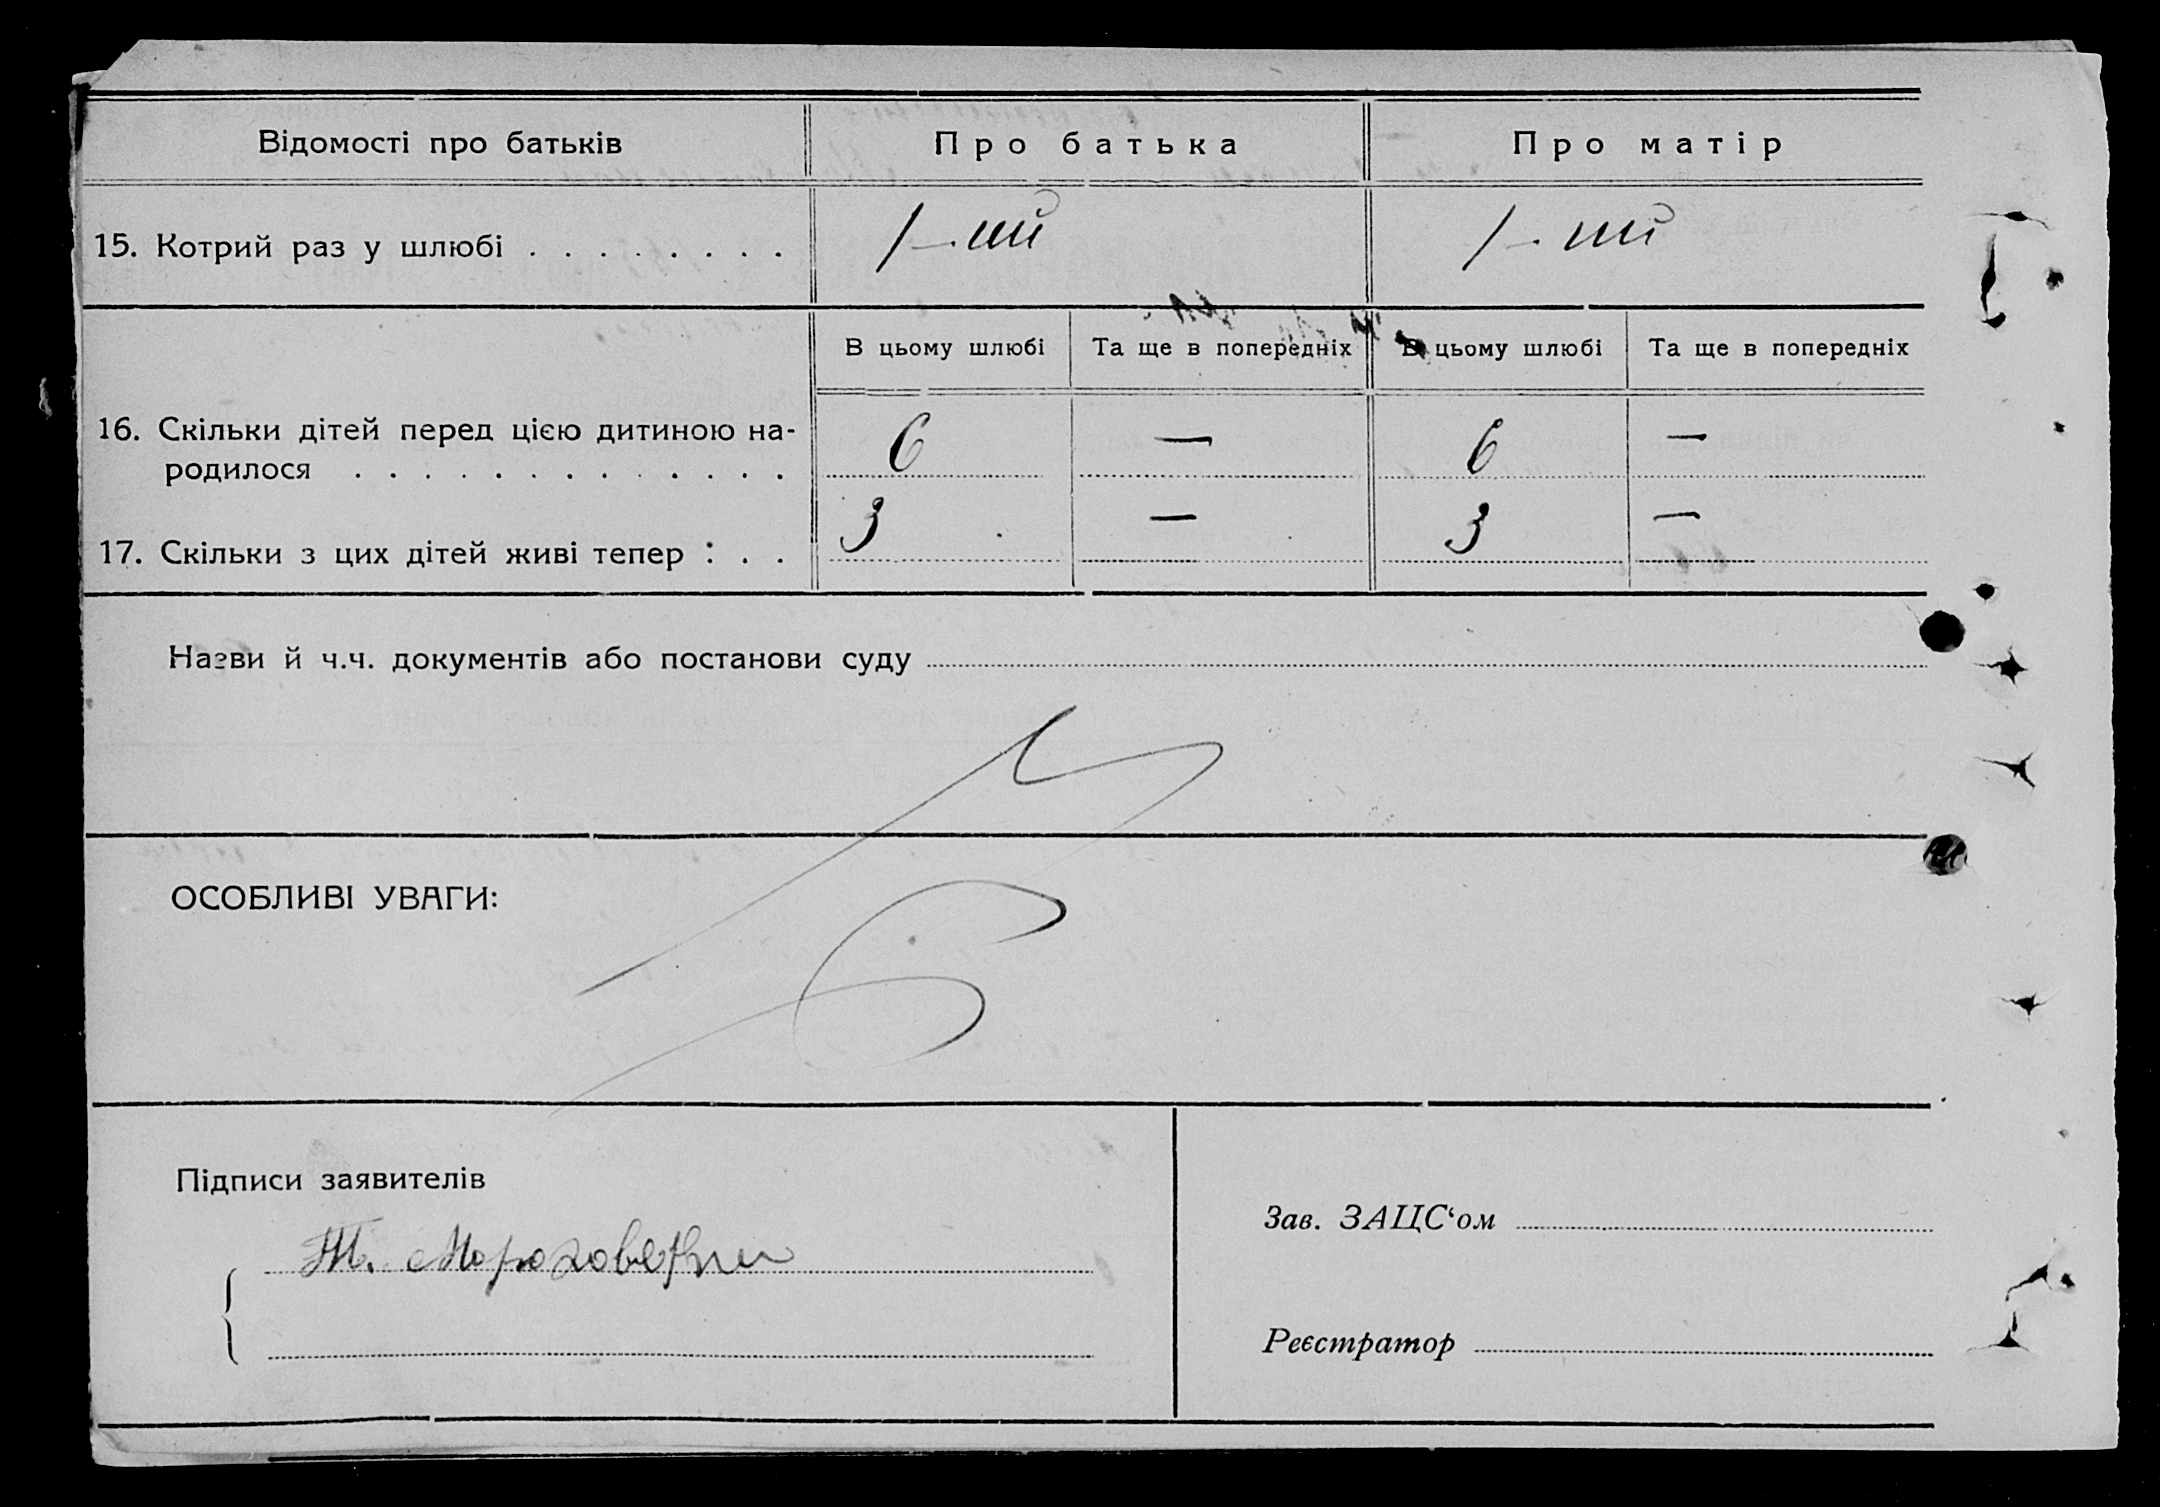 Відомості про батьків
Про батька
Про матір
15. Котрий раз у шлюбі . . . . . . . .
1-ий
1-ий
В цьому шлюбі
Та ще в попередніх
В цьому шлюбі
Та ще в попередніх
16. Скільки дітей перед цією дитиною на-
родилося . . . . . . . . . . . . .
6
—
6
—
17. Скільки з цих дітей живі тепер : . .
3
—
3
—
Назви й ч.ч. документів або постанови суду
ОСОБЛИВІ УВАГИ:
Підписи заявителів
Зав. ЗАЦС‘ом
Реєстратор